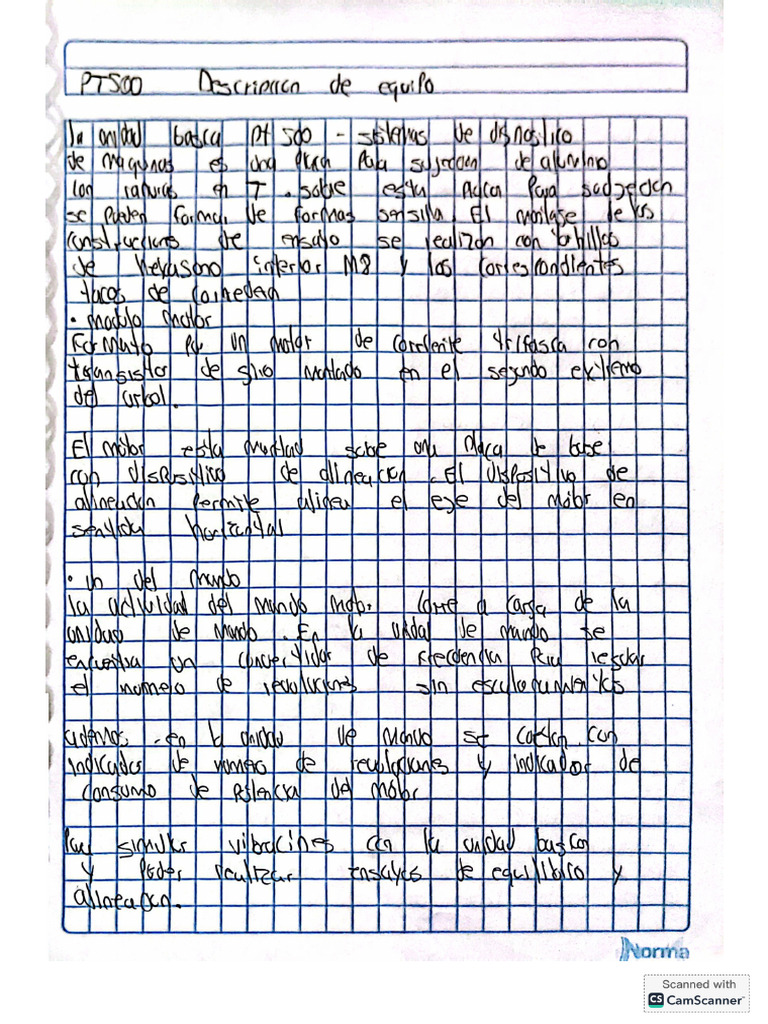 PT500 Descripcion de equipo
la unidad basca Pt 500 - sistemas de disnostico
de maqunas es una placa Para sujecion de aluminio
con ranuras en T . sobre esta placa Para sudjecion
se pueden formar de formas sensilla. El montase de las
construcciones de ensayo se realizan con tobillos
de hexasono interior M8 y los correspondientes
tacos de corredera
• modulo motor
Formato por un motor de corriente trifasca con
transistor de giro montado en el segundo extremo
del arbol.
El motor esta montad sobre una placa de base
con dispositivo de alineacion . El dispositivo de
alineacion permite alinea el eje del motor en
sentido horizontal
• un del mando
la actividad del mundo moto. corre a carga de la
unidad de mando . En la unidad de mando se
encuentra un convertidor de frecuencia Para regular
el numero de revoluciones sin escalonamientos
ademas . en la unidad de mando se cuentan con
indicador de numero de revoluciones y indicador de
consumo de Potencia del motor
Para simular vibracines con la unidad basca
y Poder realizar ensayos de equilibrio y
alineacion.
Norma
Scanned with
CS CamScanner